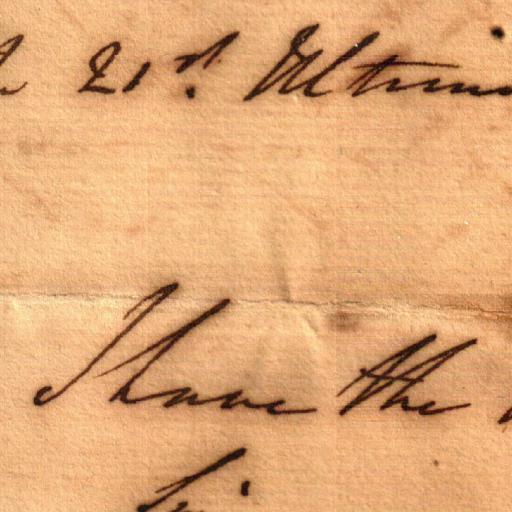 21st. Ultimo
I have the
Sir